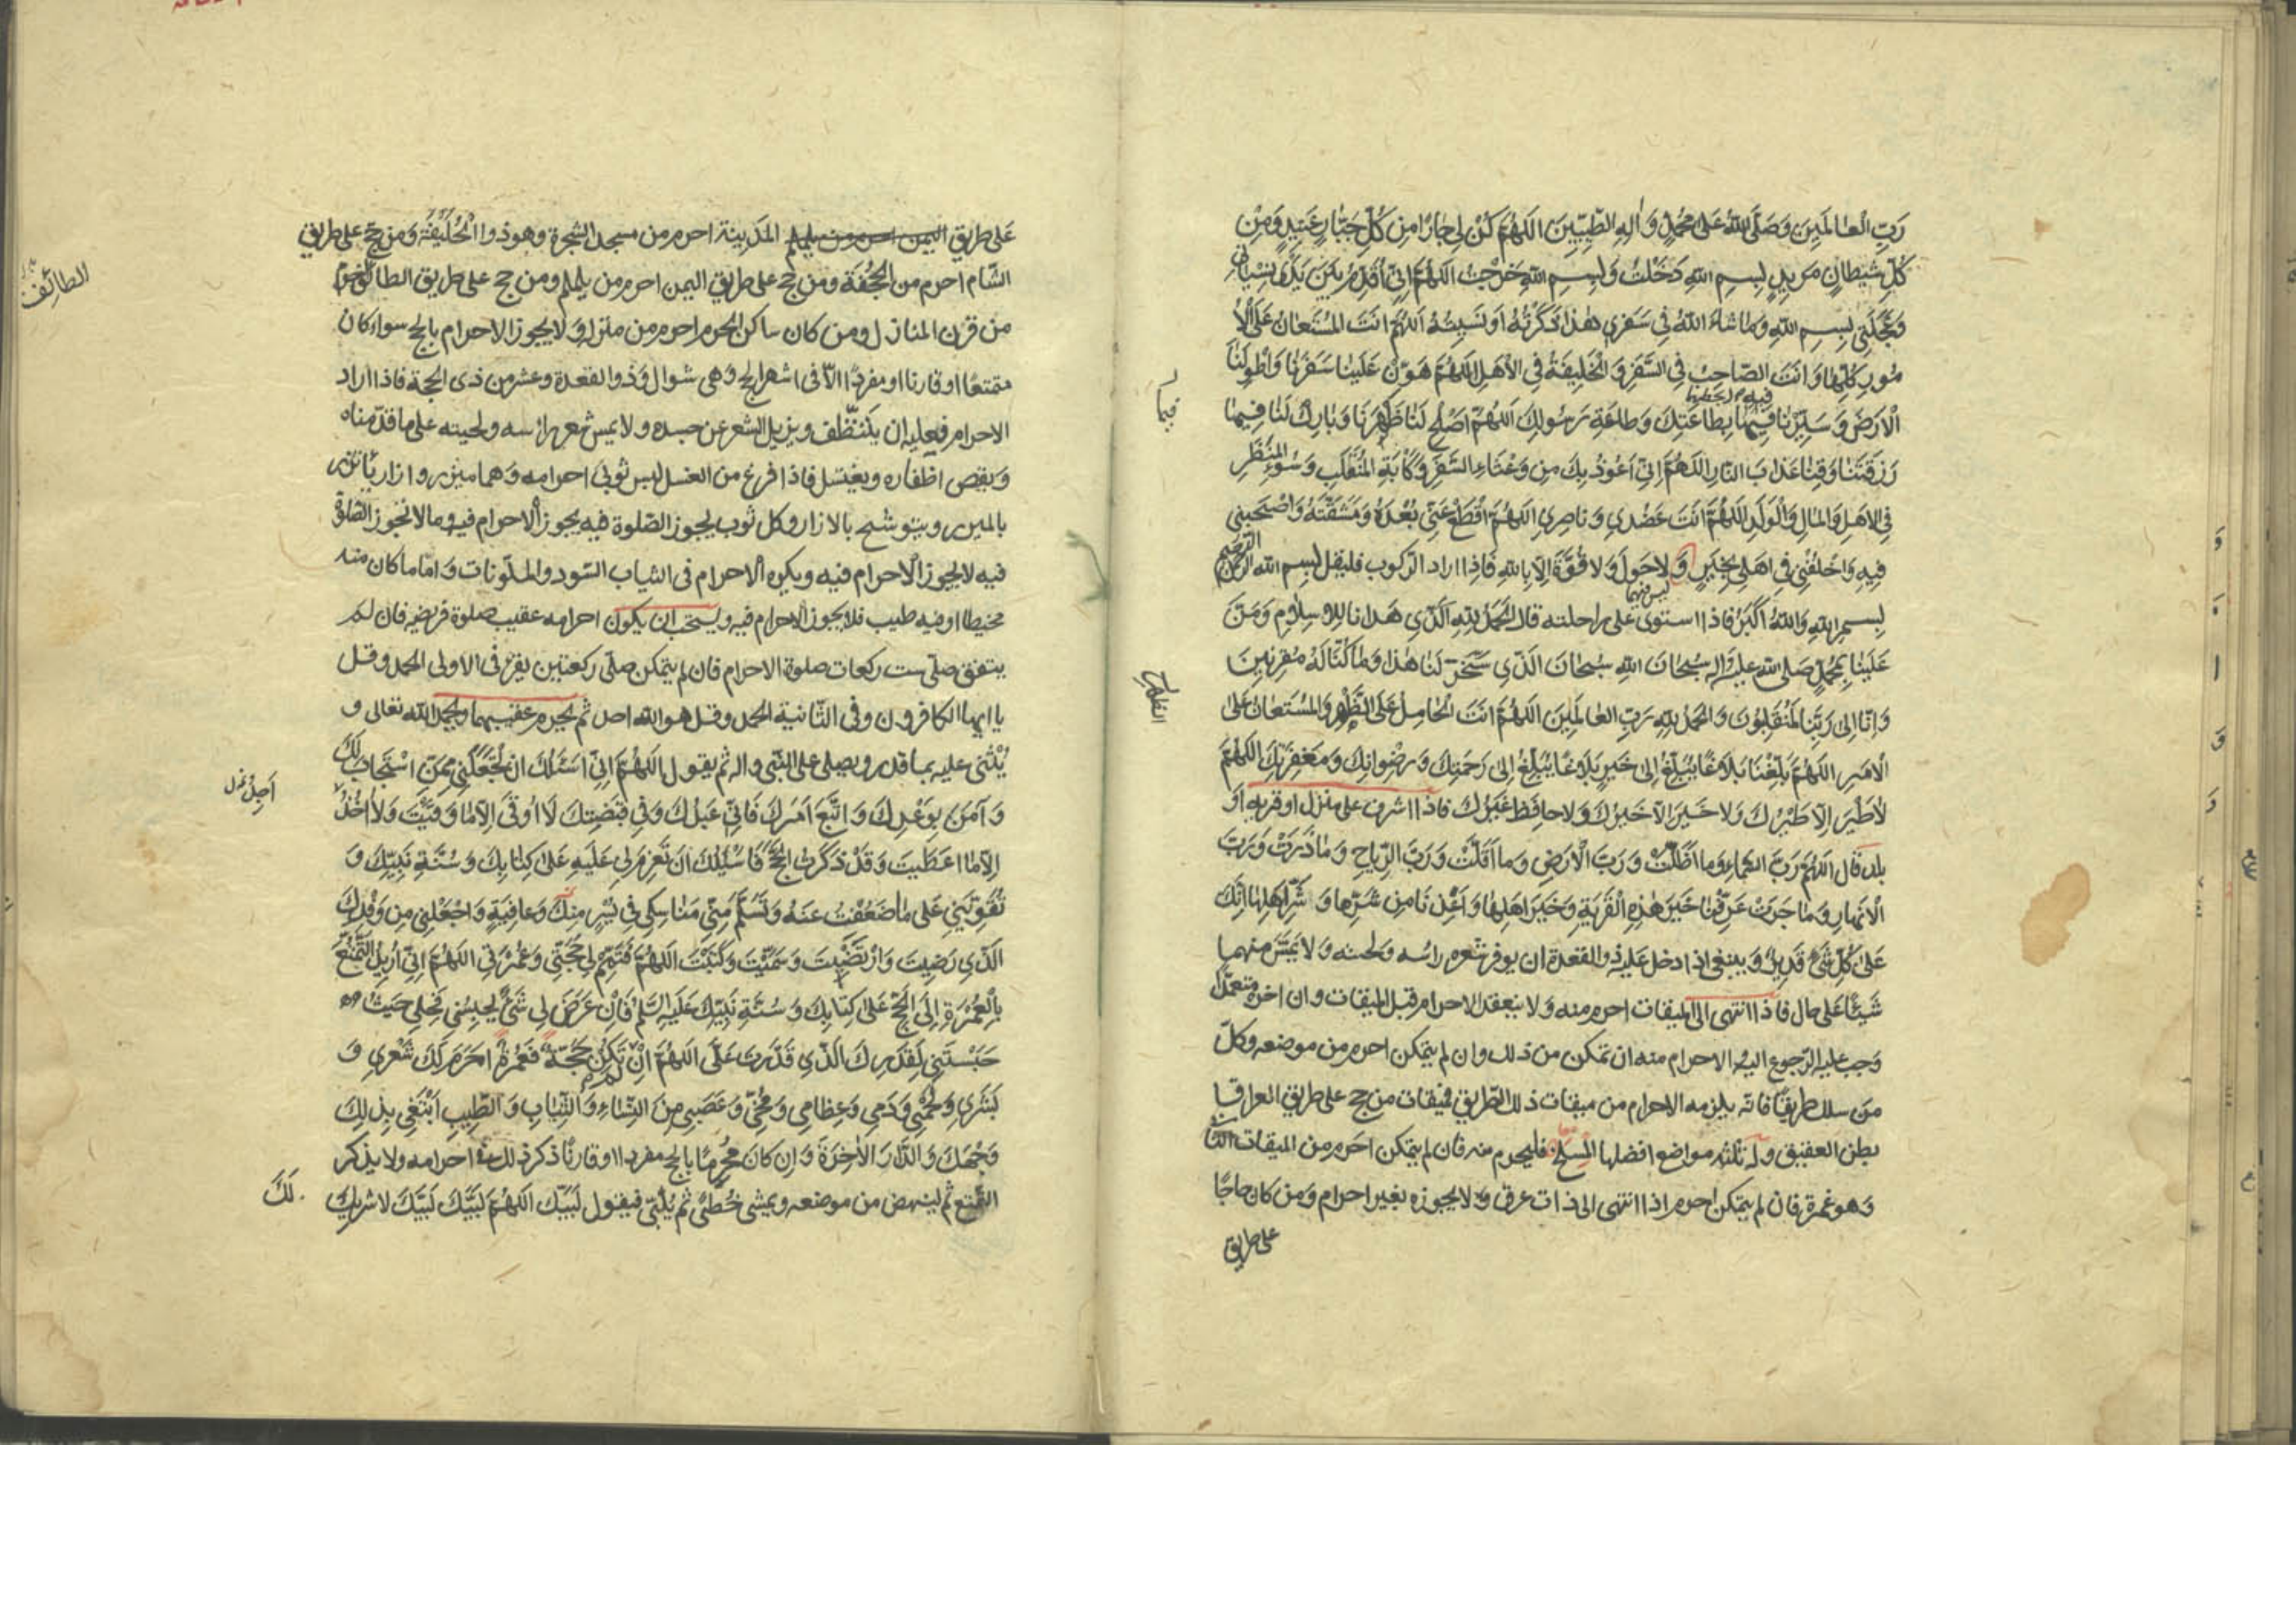 رَبِّ الْعٰالَمِينَ وَصَلَّى اللّٰهُ عَلى مُحَمَّدٍ وَاٰلِهِ الطَّيِّبِينَ اَللّٰهُمَّ كُنْ لِي جٰارًا مِن كُلِّ جَبّٰارٍ عَنِيدٍ وَمِنْ
كُلِّ شَيطانٍ مَرِيدٍ بِسمِ اللهِ دَخَلْتُ وَبِسمِ اللهِ خَرَجْتُ اَللّٰهُمَّ اِنّي اُقَدِّمُ بَينَ يَدَى نِسْيٰانِي
وَعَجَلَتِي بِسمِ اللهِ وَمٰا شاءَ اللهُ فِي سَفَرِي هٰذا ذَكَرْتُهُ اَو نَسِيتُهُ اَللّٰهُمَّ انتَ المُسْتَعٰانُ عَلَى الْاُ
مُورِ كُلِّهٰا وَانتَ الصّاحِبُ فِي السَّفَرِ وَالْخَلِيفَةُ فِي الاَهْلِ اَللّٰهُمَّ هَوِّنْ عَلَينٰا سَفَرَنٰا وَاطْوِ لَنٰا
الْاَرضَ وَسَيِّرْنٰا فِيهٰا بِطٰاعَتِكَ وَطٰاعَةِ رَسُولِكَ اَللّٰهُمَّ اَصْلِحْ لَنٰا ظَهْرَنٰا وَبٰارِكْ لَنٰا فِيمٰا
رَزَقْتَنٰا وَقِنٰا عَذٰابَ النّارِ اَللّٰهُمَّ اِنّي اَعُوذُ بِكَ مِن وَعْثٰاءِ السَّفَرِ وَكَآبَةِ المُنْقَلَبِ وَسُوءِ المَنْظَرِ
فِي الاَهلِ وَالمٰالِ وَالْوَلَدِ اَللّٰهُمَّ اَنتَ عَضُدِي وَنٰاصِرِي اَللّٰهُمَّ اقْطَعْ عَنّي بُعْدَهُ وَمَشَقَّتَهُ وَاصْحَبْنِي
فِيهِ وَاخْلُفْنِي فِي اَهْلِي بِخَيرٍ وَلا حَولَ وَلا قُوَّةَ اِلّا بِاللهِ فَاِذا اراد الرّكوب فليقل بسم الله الرّحمن الرّحيم
بِسمِ اللهِ وَاللهُ اَكْبَرُ فاذا استوى على راحلته قال اَلْحَمْدُ لِلّٰهِ الَّذِي هَدٰانٰا لِلاِسلامِ وَمَنَّ
عَلَينٰا بِمُحَمَّدٍ صَلى الله عليه وَاٰله سُبْحٰانَ اللهِ سُبْحٰانَ الَّذِي سَخَّرَ لَنٰا هٰذا وَمٰا كُنّٰا لَهُ مُقْرِنِينَ
وَاِنّا اِلى رَبِّنٰا لَمُنْقَلِبُونَ وَالْحَمْدُ لِلّٰهِ رَبِّ العٰالَمِينَ اَللّٰهُمَّ اَنتَ الْحٰامِلُ عَلَى الظَّهْرِ وَالمُسْتَعٰانُ عَلَى
الْاَمرِ اَللّٰهُمَّ بَلِّغْنٰا بَلاغًا يُبَلِّغُ اِلى خَيرٍ بَلاغًا يُبَلِّغُ اِلى رَحْمَتِكَ وَرِضْوٰانِكَ وَمَغْفِرَتِكَ اللّٰهُمَّ
لاٰ طَيْرَ اِلّا طَيْرُكَ وَلا خَيرَ اِلّا خَيرُكَ وَلا حٰافِظَ غَيرُكَ فاذا اشرف على منزل او قرية او
بلد قال اَللّٰهُمَّ رَبَّ السَّمٰاءِ وَما اَظَلَّتْ وَرَبَّ الْاَرضِ وَما اَقَلَّتْ وَرَبَّ الرِّيٰاحِ وَمٰا ذَرَتْ وَرَبَّ
الْاَنهٰارِ وَمٰا جَرَتْ عَرِّفْنٰا خَيرَ هٰذِهِ الْقَرْيَةِ وَخَيرَ اَهْلِهٰا وَاَعِذْنٰا مِن شَرِّهٰا وَشَرِّ اَهْلِهٰا اِنَّكَ
عَلىٰ كُلِّ شَيءٍ قَدِيرٌ وَينبغى اذا دخل عليه ذو القعدة ان يوفر شعر رأسه ولحيته وَلا يَمَسّ منهما
شَيئًا عَلى حال فاذا انتهى الى الميقات احرم منه وَلا ينعقد الاحرام قبل الميقات وان اخره متعمدًا
وَجب عليه الرّجوع اليه والاحرام منه ان تمكن من ذلك وان لم يتمكن احرم من موضعه وكلّ
مَن سلك طريقًا فانّه يلزمه الاحرام من ميقات ذلك الطّريق فميقات من حج على طريق العراق
بطن العقيق وله ثلثة مواضع افضلها المسلخ فليحرم منه فان لم يتمكن احرم من الميقات الثانى
وَهو غمرة فان لم يتمكن احرم اذا انتهى الى ذات عرق ولا يجوزه بغير احرام وَمن كان حاجًا
على طريق
فيما
الظهر
عَلى طريق اليمن احرم من يلملم المَدينة احرم من مسجد الشجرة وهو ذوا الْحُلَيْفَة وَمن حجّ على طريق
الشّام احرم من الجُحْفَة ومن حج على طريق اليمن احرم من يلملم ومن حج على طريق الطائف احرم
من قرن المنازل ومن كان ساكن الحرم احرم من منزله وَلا يجوز الاحرام بالحج سواء كان
متمتعًا او قارنا او مفردًا الّا فى اشهر الحج وَهى شوال وَذو القعدة وعشر من ذى الحجة فاذا اراد
الاحرام فعليه ان يتنظّف ويزيل الشعر عن جسده ولا يمس شعر رأسه ولحيته على ما قدّمناه
وَيقص اظفاره ويغتسل فاذا فرغ من الغسل لبس ثوبَى احرامه وَهما ميزر وازار يأتزر
بالميزر ويتوشح بالازار وكل ثوب يجوز الصّلوة فيه يجوز الاحرام فيه وما لا تجوز الصّلوة
فيه لا يجوز الاحرام فيه ويكره الاحرام فى الثياب السّود والملوّنات وَامّا ما كان منه
مخيطا او فيه طيب فلا يجوز الاحرام فيه ويستحب ان يكون احرامه عقيب صلوة فريضه فان لم
يتفق صلّى ست ركعات صلوة الاحرام فان لم يتمكن صلّى ركعتين يقرء فى الاولى الحمد وقل
يا ايها الكافرون وفى الثّانية الحمد وقل هو الله احد ثم يحرم عقيبهما ويحمد الله تعالى و
يُثْنى عليه بما قدر ويصلى على النّبى واله ثم يقول اَللّٰهُمَّ اِنّي اَسْئَلُكَ ان تَجْعَلَنِي مِمَّنِ اسْتَجٰابَ لَكَ
وَآمَنَ بِوَعْدِكَ وَاتَّبَعَ اَمرَكَ فَاِنّي عَبْدُكَ وَفِي قَبْضَتِكَ لٰا اُوقٰى اِلّا مٰا وَقَيْتَ وَلٰا اٰخُذُ
اِلّا مٰا اعطَيتَ وَقَدْ ذَكَرْتَ الحَجَّ فَاَسْئَلُكَ اَنْ تَعْزِمَ لِي عَلَيهِ عَلىٰ كِتٰابِكَ وَسُنَّةِ نَبِيِّكَ وَ
تُقَوِّيَنِي عَلى مٰا ضَعُفْتُ عَنْهُ وَتَسَلَّمَ مِنّي مَنٰاسِكِي فِي يُسْرٍ مِنكَ وَعٰافِيَةٍ وَاجْعَلْنِي مِن وَفْدِكَ
الَّذِي رَضِيتَ وَارْتَضَيْتَ وَسَمَّيْتَ وَكَتَبْتَ اَللّٰهُمَّ فَتَمِّمْ لِي حَجَّتِي وَعُمْرَتِي اَللّٰهُمَّ اِنّي اُرِيدُ التَّمَتُّعَ
بِالْعُمْرَةِ اِلَى الحَجِّ عَلىٰ كِتٰابِكَ وَسُنَّةِ نَبِيِّكَ عَلَيهِ السَّلٰمُ فَاِنْ عَرَضَ لِي شَيءٌ يحبِسُنى فَحُلَّنِي حَيثُ
حَبَسْتَنِي لِقَدَرِكَ الَّذِي قَدَّرتَ عَلَىَّ اَللّٰهُمَّ اِنْ لَمْ تَكُنْ حَجَّةً فَعُمْرَةً اَحرَمَ لَكَ شَعْرِي وَ
بَشَرِي وَلَحْمِي وَدَمِي وَعِظٰامِي وَمُخّي وَعَصَبِي مِنَ النِّسٰاءِ وَالثِّيٰابِ وَالطِّيبِ اَبْتَغِي بِذٰلِكَ
وَجْهَكَ وَالدّارَ الاٰخِرَةَ وَاِن كانَ مُحْرِمًا بالحج مفردا او قارنًا ذكر ذلك فى احرامه ولا يذكر
التّمتع ثم لينهض من موضعه ويمشى خُطىً ثم يُلَبّى فيقول لَبَّيْكَ اَللّٰهُمَّ لَبَّيْكَ لَبَّيْكَ لا شَرِيكَ
لَكَ
الطائف